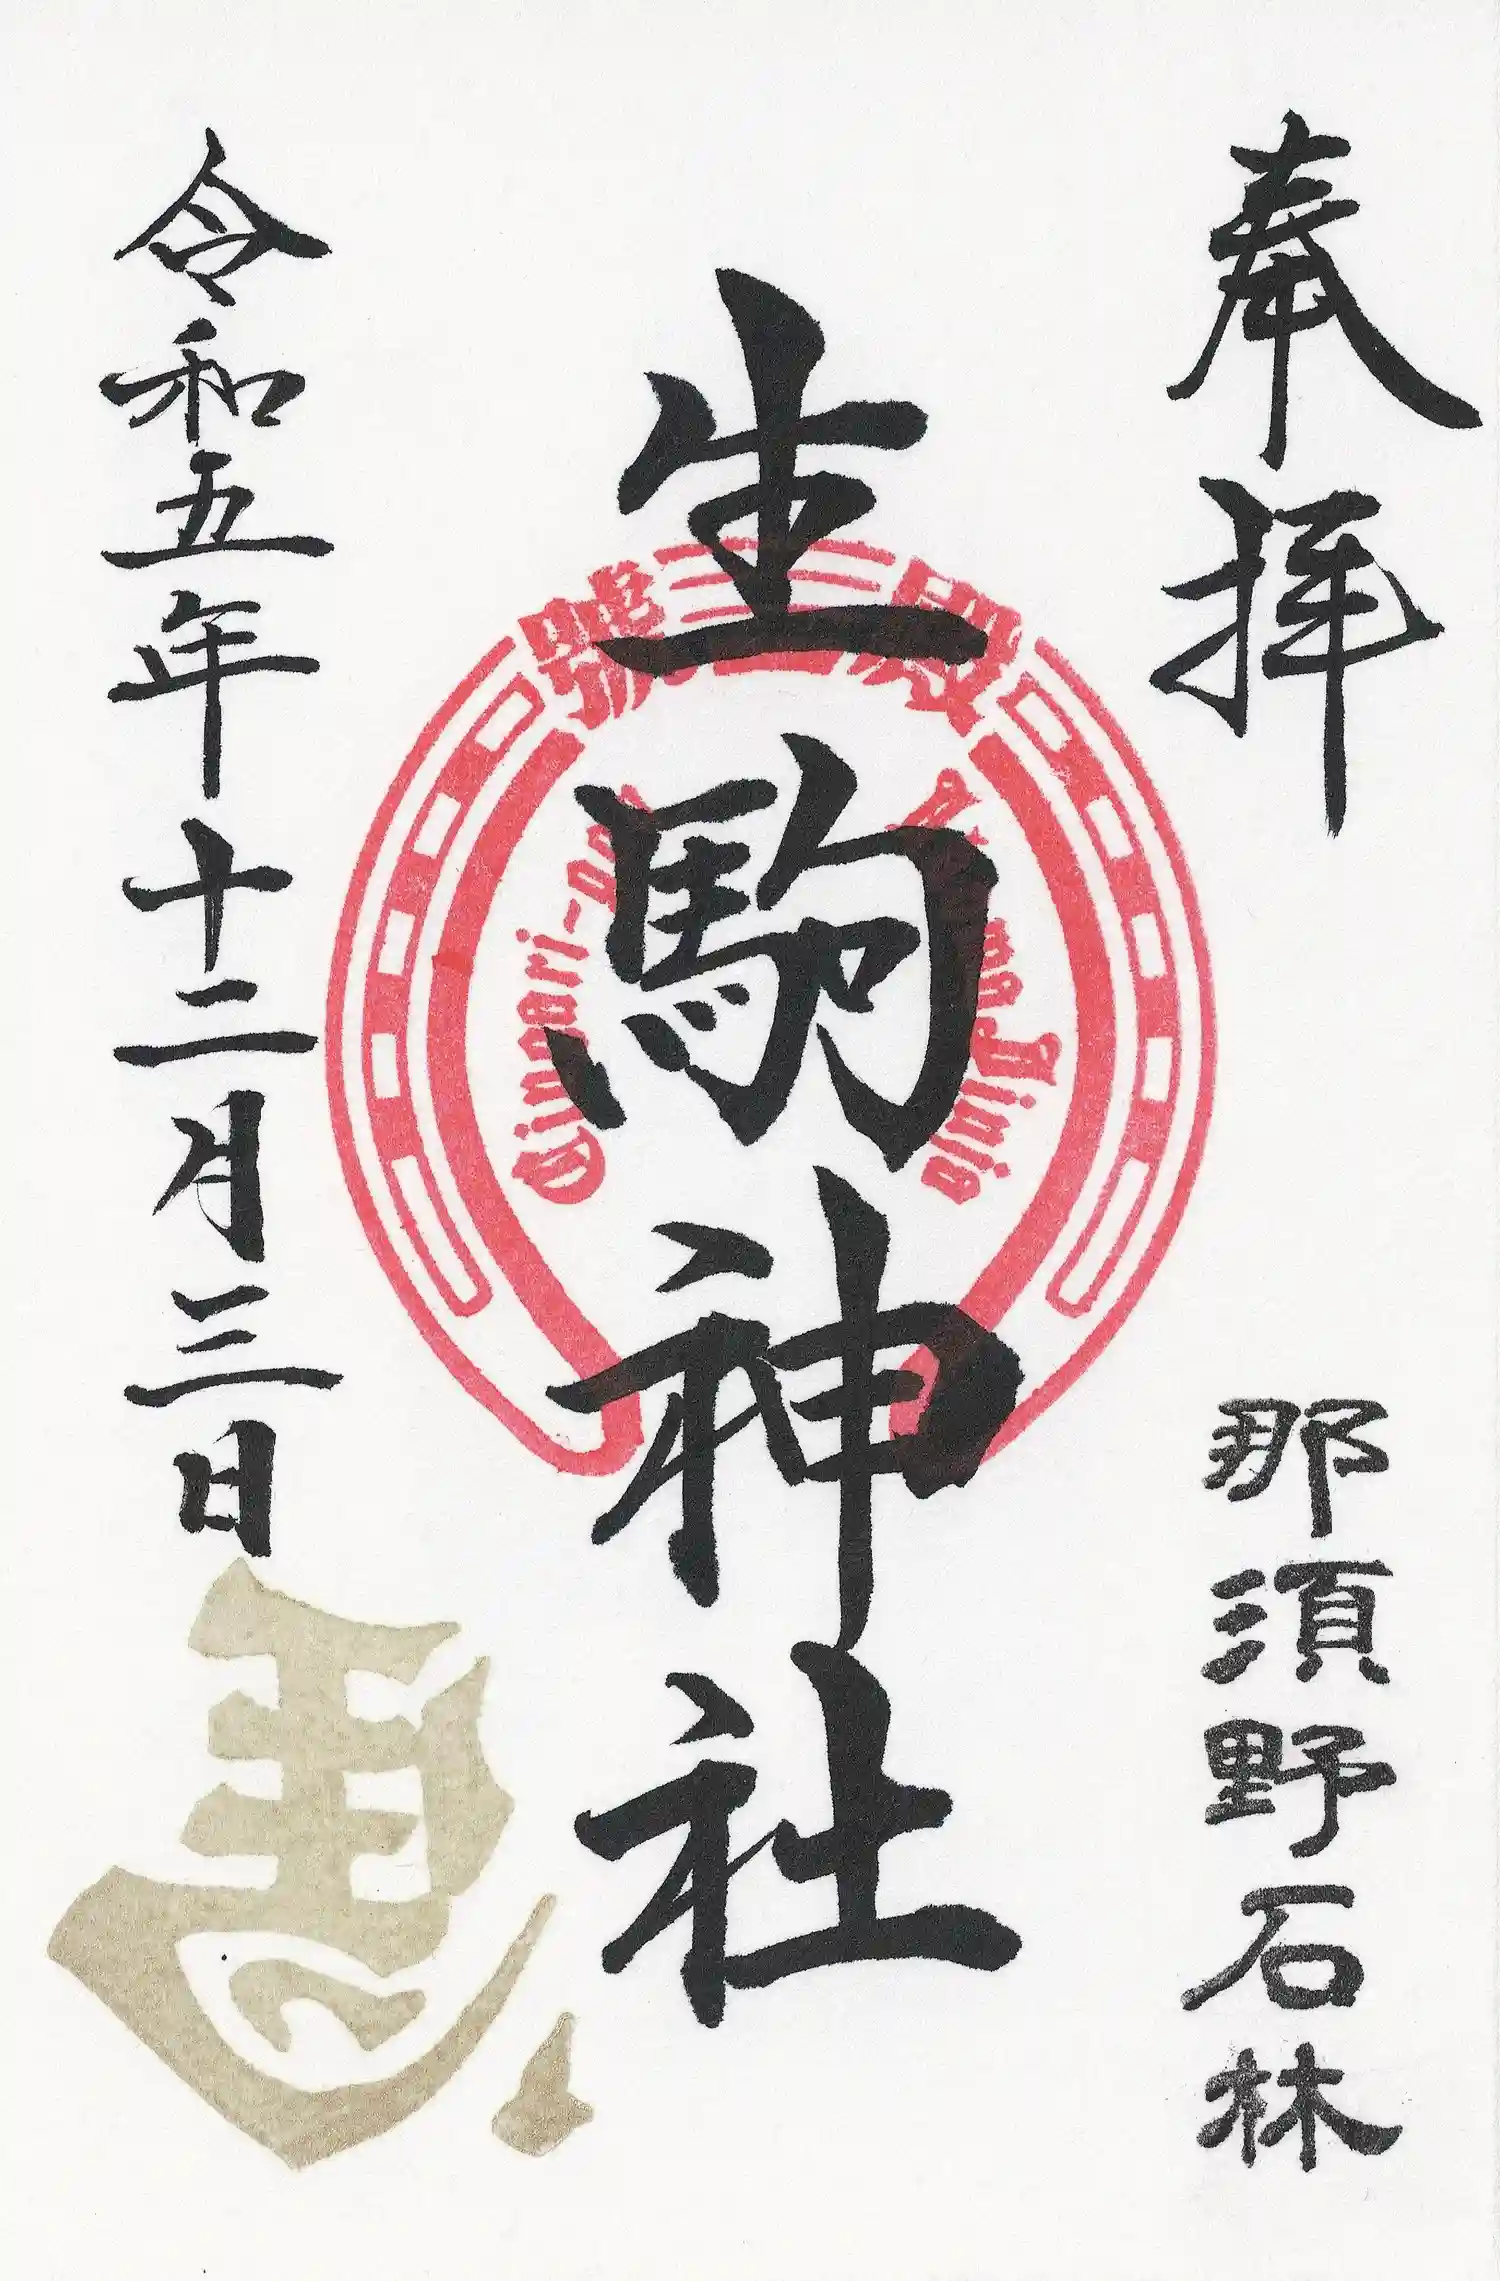 奉拝
那須野石林
生駒神社
Jinja
令和五年十二月三日
馬